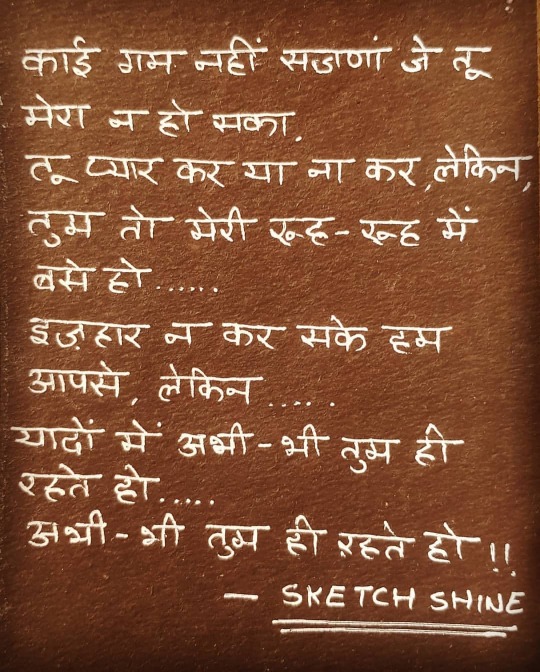 काई गम नहीं सजाणां जे तू
मेरा न हो सका.
तू प्यार कर या ना कर, लेकिन,
तुम तो मेरी रूह-रूह में
बसे हो......
इज़हार न कर सके हम
आपसे, लेकिन .....
यादों में अभी-भी तुम ही
रहते हो.....
अभी-भी तुम ही रहते हो !!
— SKETCH SHINE